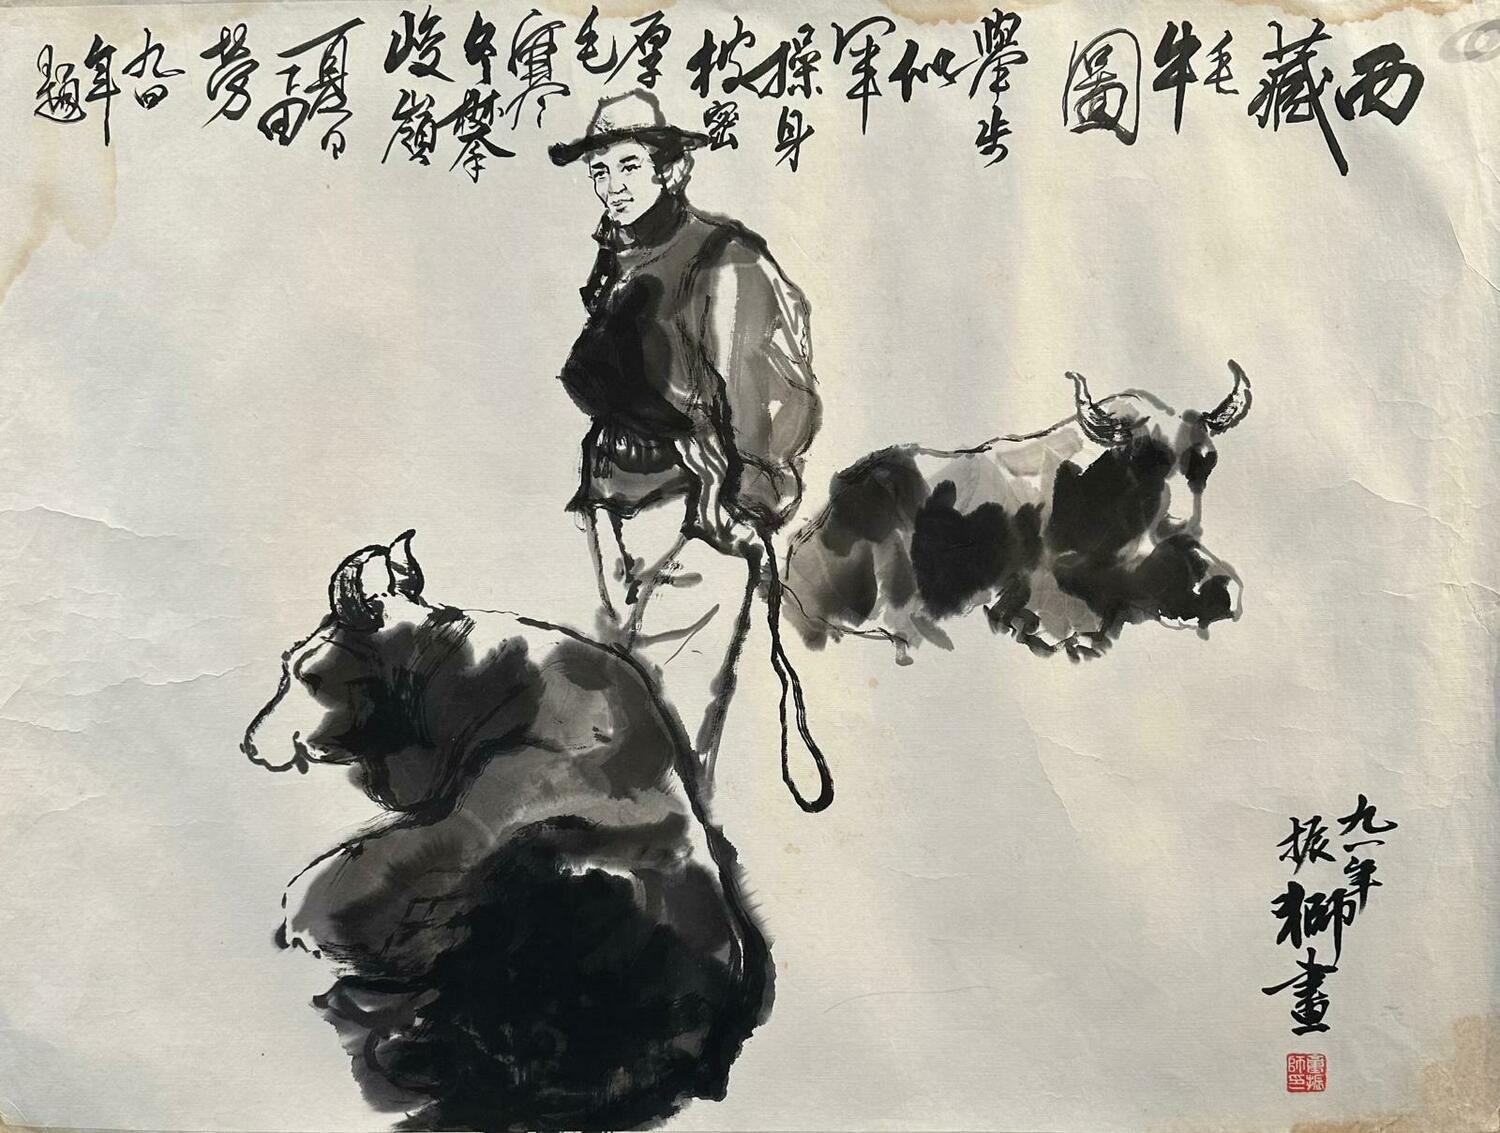 西藏毛牛圖
舉步似軍操身披密厚毛寒冬攀峻嶺夏日下田勞
九四年題
九一年
振獅畫